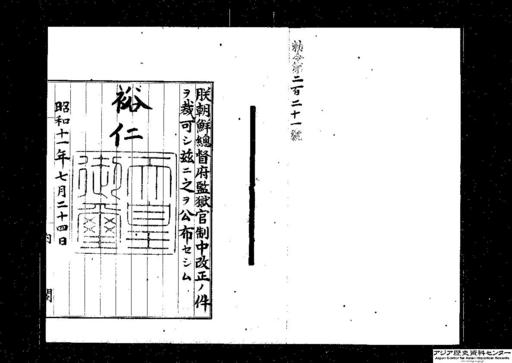 勅令第二百二十一號
朕朝鮮總督府監獄官制中改正ノ件
ヲ裁可シ茲ニ之ヲ公布セシム
裕仁
天皇御璽
昭和十一年七月二十四日
内閣
アジア歴史資料センター
Japan Center for Asian Historical Records